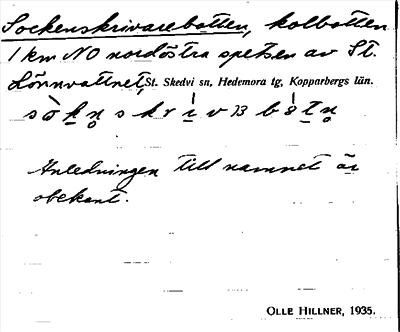 Sockenskrivarebotten, kolbotten
1 km NO nordöstra spetsen av St.
Lönnvattnet, St. Skedvi sn, Hedemora tg, Kopparbergs län.
Anledningen till namnet är
obekant.
OLLE HILLNER, 1935.